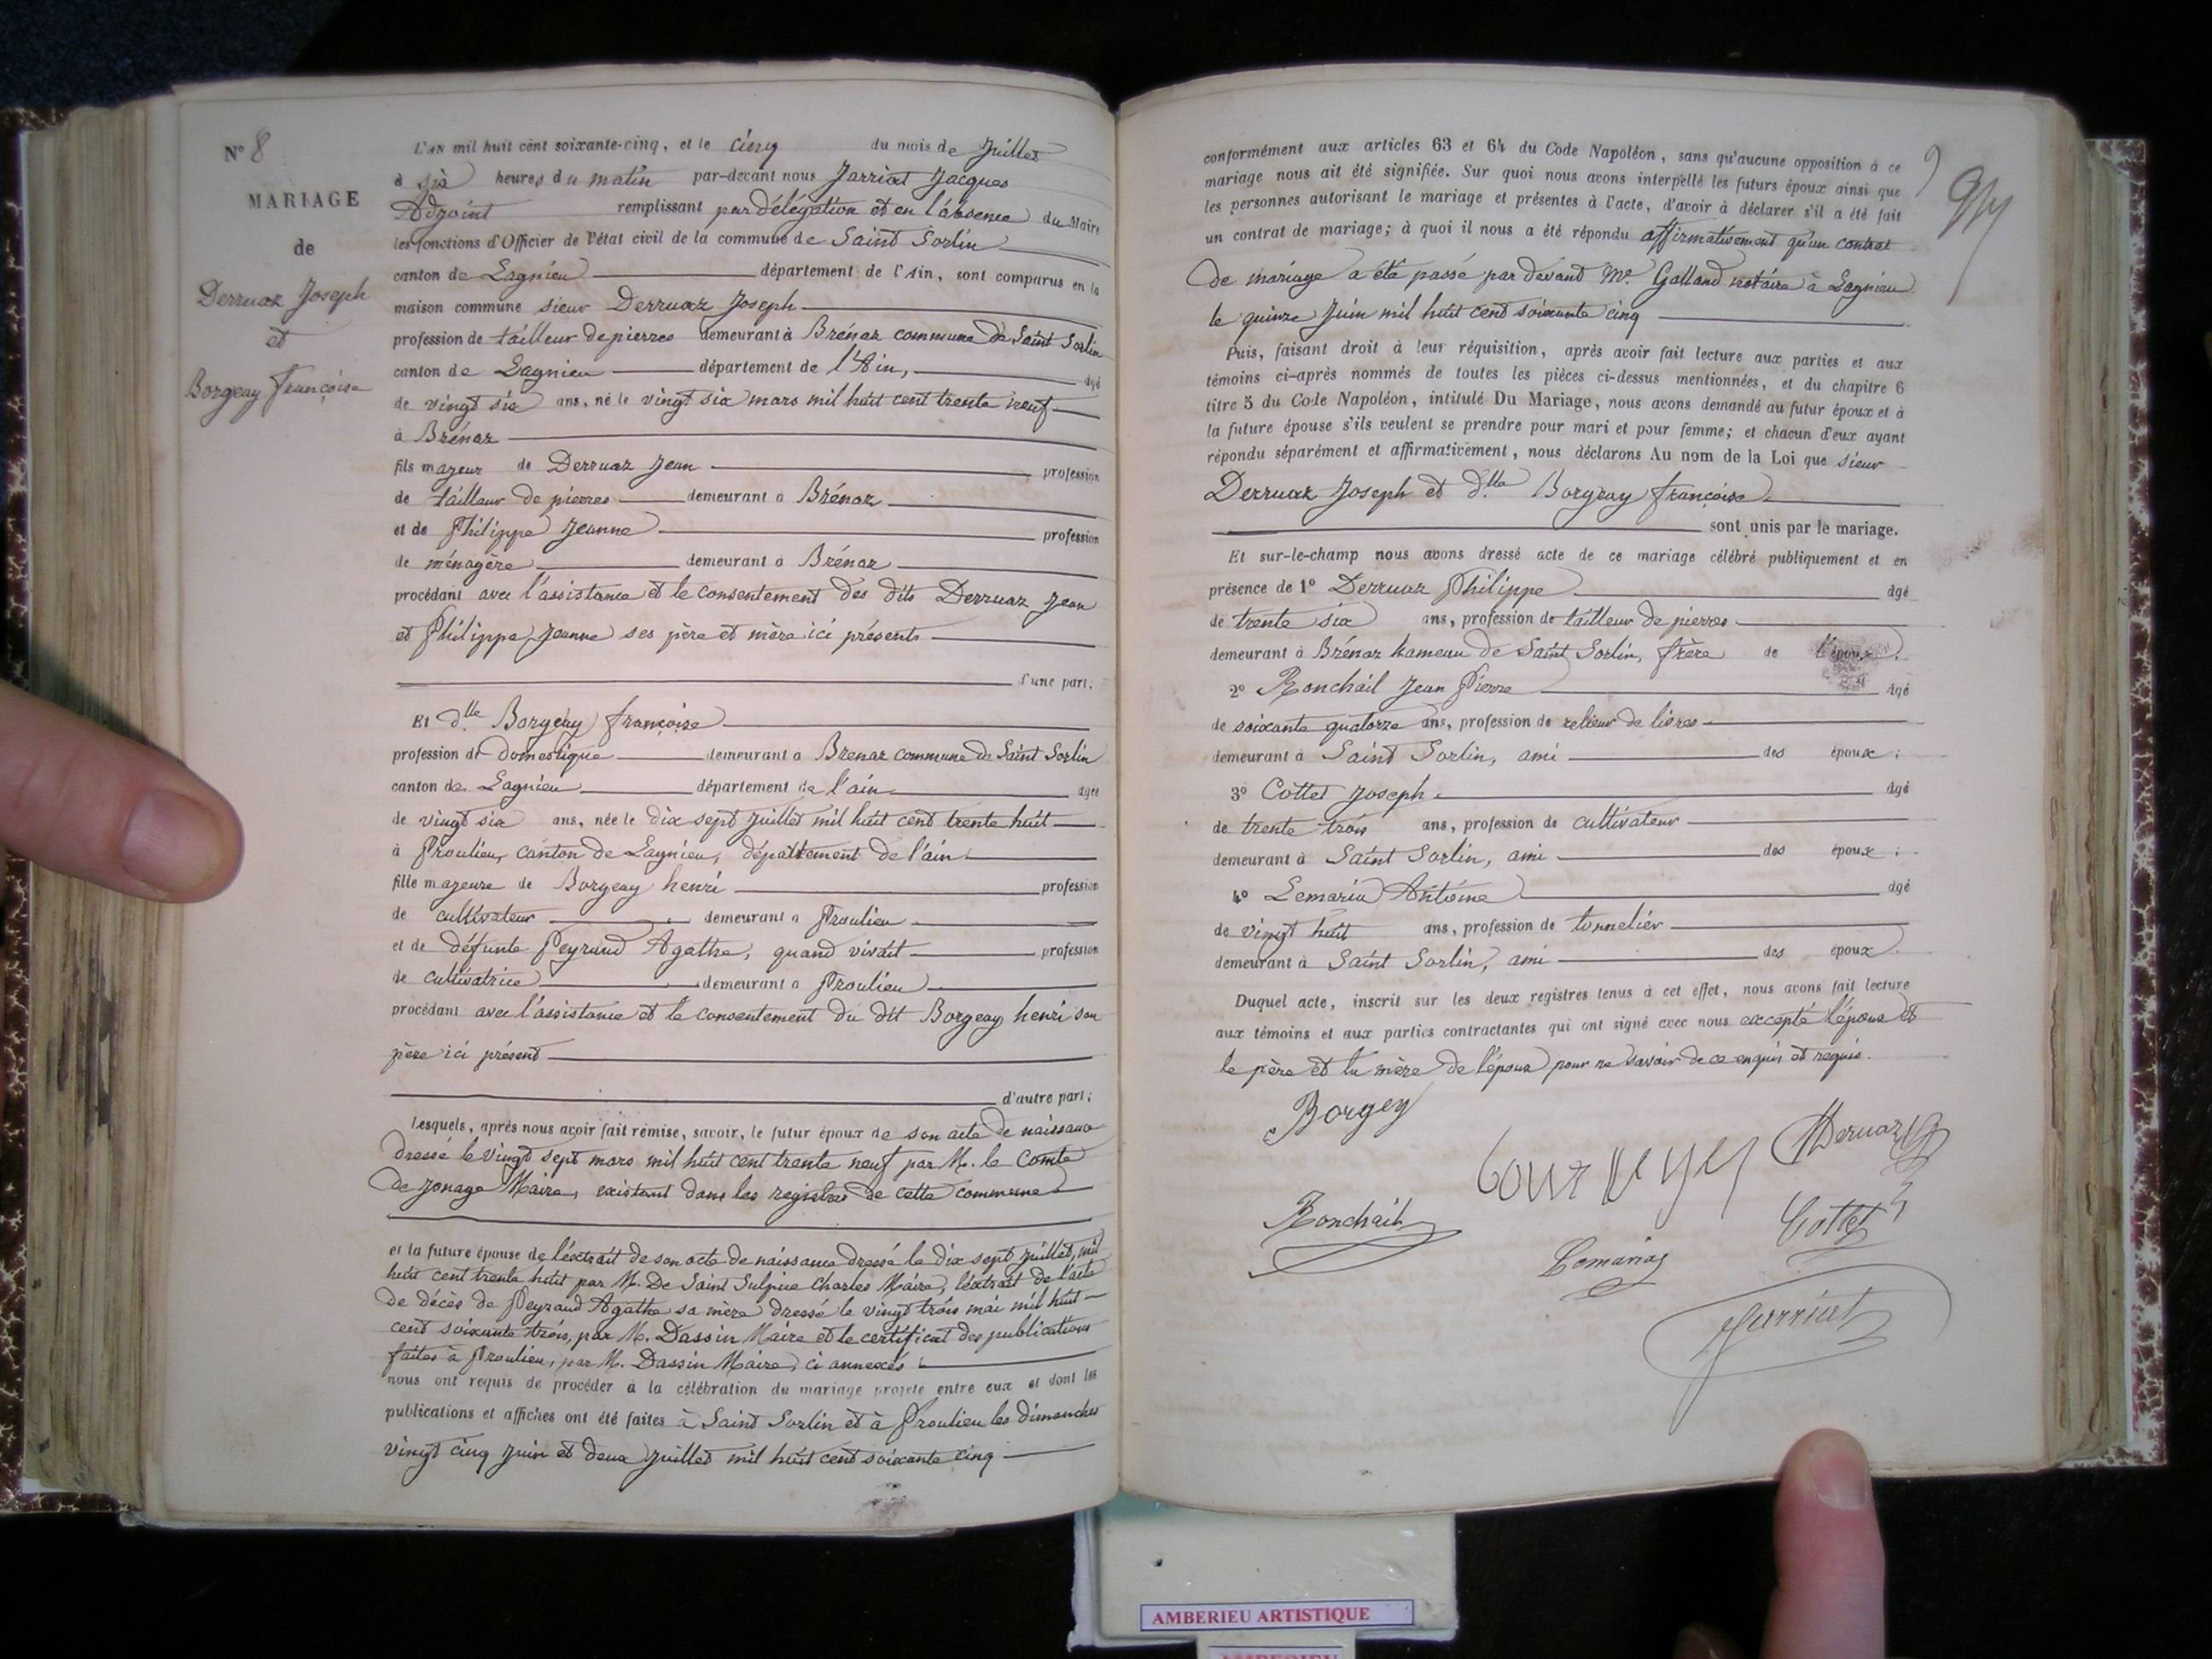 N° 8
MARIAGE
de
Derruaz Joseph
et
Borgeay Françoise
L'AN mil huit cent soixante-cinq, et le cinq du mois de Juillet
à six heures du matin par-devant nous Jarriat Jacques
Adjoint remplissant par délégation et en l'absence du Maire
les fonctions d'Officier de l'état civil de la commune de Saint Sorlin
canton de Lagnieu département de l'Ain, sont comparus en la
maison commune sieur Derruaz Joseph
profession de tailleur de pierres demeurant à Brénaz commune de Saint Sorlin
canton de Lagnieu département de l'Ain, âgé
de vingt six ans, né le vingt six mars mil huit cent trente neuf
à Brénaz
fils majeur de Derruaz Jean profession
de tailleur de pierres demeurant à Brénaz
et de Philippe Jeanne profession
de ménagère demeurant à Brénaz
procédant avec l'assistance et le consentement des dits Derruaz Jean
et Philippe Jeanne ses père et mère ici présents
d'une part;
Et dlle Borgeay françoise
profession de domestique demeurant à Brenaz commune de Saint Sorlin
canton de Lagnieu département de l'ain âgée
de vingt six ans, née le dix sept Juillet mil huit cent trente huit
à Proulieu, canton de Lagnieu, département de l'ain
fille majeure de Borgeay henri profession
de cultivateur demeurant à Proulieu
et de défunte Peyraud Agathe, quand vivait profession
de cultivatrice demeurant à Proulieu
procédant avec l'assistance et le consentement du dit Borgeay henri son
père ici présent
d'autre part;
Lesquels, après nous avoir fait remise, savoir, le futur époux de son acte de naissance
dressé le vingt sept mars mil huit cent trente neuf par M. le Comte
de Jonage Maire, existant dans les registres de cette commune
et la future épouse de l'extrait de son acte de naissance dressé le dix sept Juillet, mil
huit cent trente huit par M. De Saint Sulpice Charles Maire, l'extrait de l'acte
de décès de Peyraud Agathe sa mère dressé le vingt trois mai mil huit
cent soixante trois, par M. Dassin Maire et le certificat des publications
faites à Proulieu, par M. Dassin Maire, ci annexés
nous ont requis de procéder à la célébration du mariage projeté entre eux et dont les
publications et affiches ont été faites à Saint Sorlin et à Proulieu les dimanches
vingt cinq Juin et deux Juillet mil huit cent soixante cinq
conformément aux articles 63 et 64 du Code Napoléon, sans qu'aucune opposition à ce
mariage nous ait été signifiée. Sur quoi nous avons interpellé les futurs époux ainsi que
les personnes autorisant le mariage et présentes à l'acte, d'avoir à déclarer s'il a été fait
un contrat de mariage; à quoi il nous a été répondu affirmativement qu'un contrat
de mariage a été passé par devant Me. Galland notaire à Lagnieu
le quinze Juin mil huit cent soixante cinq
Puis, faisant droit à leur réquisition, après avoir fait lecture aux parties et aux
témoins ci-après nommés de toutes les pièces ci-dessus mentionnées, et du chapitre 6
titre 5 du Code Napoléon, intitulé Du Mariage, nous avons demandé au futur époux et à
la future épouse s'ils veulent se prendre pour mari et pour femme; et chacun d'eux ayant
répondu séparément et affirmativement, nous déclarons Au nom de la Loi que sieur
Derruaz Joseph et dlle Borgeay françoise
sont unis par le mariage.
Et sur-le-champ nous avons dressé acte de ce mariage célébré publiquement et en
présence de 1° Derruaz Philippe âgé
de trente six ans, profession de tailleur de pierres
demeurant à Brénaz hameau de Saint Sorlin, frère de l'époux.
2° Ronchail Jean Pierre âgé
de soixante quatorze ans, profession de relieur de livres
demeurant à Saint Sorlin, ami des époux;
3° Cottet Joseph âgé
de trente trois ans, profession de cultivateur
demeurant à Saint Sorlin, ami des époux;
4° Lemaria Antoine âgé
de vingt huit ans, profession de tonnelier
demeurant à Saint Sorlin, ami des époux.
Duquel acte, inscrit sur les deux registres tenus à cet effet, nous avons fait lecture
aux témoins et aux parties contractantes qui ont signé avec nous excepté l'époux et
le père et la mère de l'époux pour ne savoir de ce enquis et requis.
Borgey
Derruaz
Ronchail
Cottet
Lemaria
Jarriat
AMBERIEU ARTISTIQUE